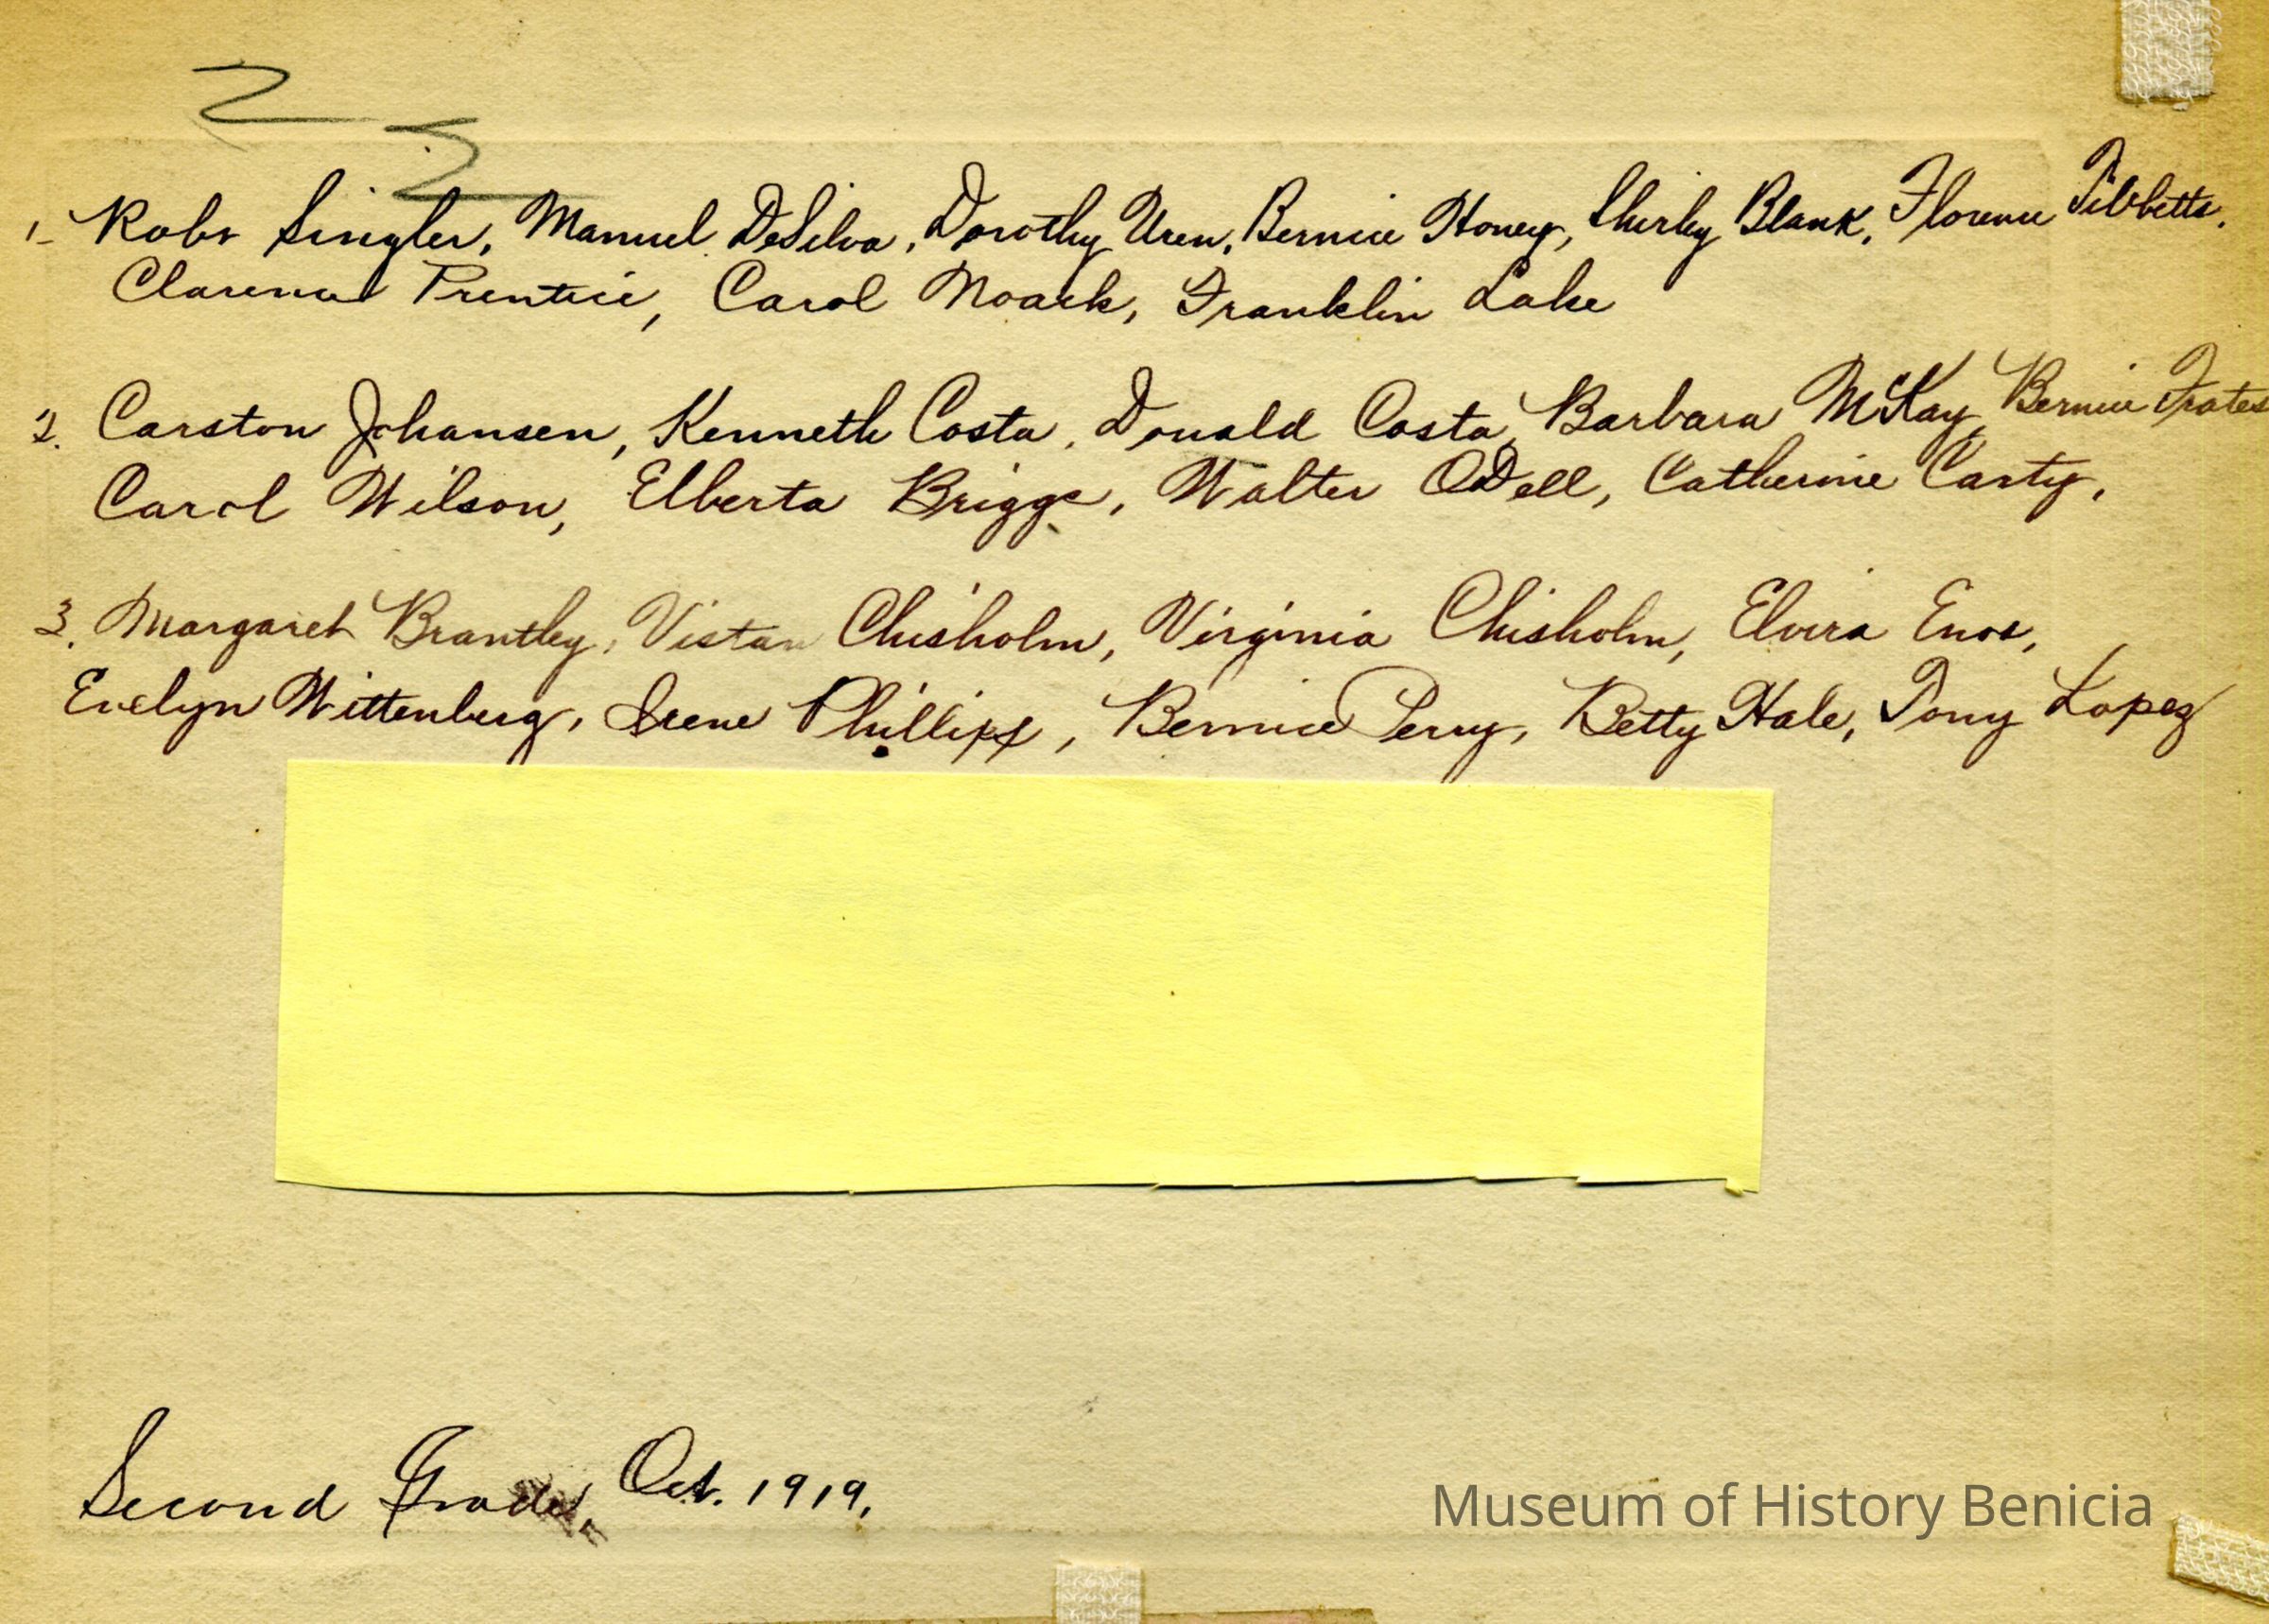 1- Robt Singler, Manuel DeSilva, Dorothy Uren, Bernice Honey, Shirley Blank, Florence Tibbetts,
Clarence Prentice, Carol Noack, Franklin Lake
2. Carston Johansen, Kenneth Costa, Donald Costa, Barbara McKay, Bernice Frates
Carol Wilson, Elberta Briggs, Walter ODell, Catherine Carty,
3. Margaret Brantley, Vistan Chisholm, Virginia Chisholm, Elvira Enos,
Evelyn Wittenberg, Irene Phillips, Bernice Perry, Betty Hale, Tony Lopez
Second Grade, Oct. 1919.
Museum of History Benicia